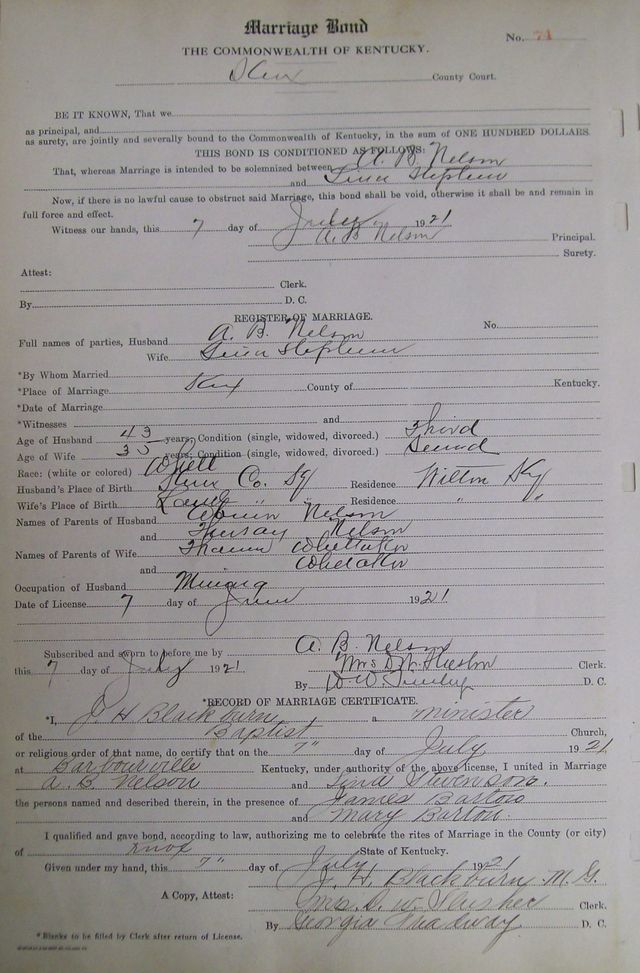 Marriage Bond
No. 71
THE COMMONWEALTH OF KENTUCKY.
County Court.
BE IT KNOWN, That we
as principal, and
as surety, are jointly and severally bound to the Commonwealth of Kentucky, in the sum of ONE HUNDRED DOLLARS.
THIS BOND IS CONDITIONED AS FOLLOWS:
That, whereas Marriage is intended to be solemnized between A. B. Nelson
and
Now, if there is no lawful cause to obstruct said Marriage, this bond shall be void, otherwise it shall be and remain in
full force and effect.
Witness our hands, this 7 day of July 1921
A. B Nelson Principal.
Surety.
Attest:
Clerk.
By D. C.
REGISTER OF MARRIAGE.
Full names of parties, Husband A. B. Nelson No.
Wife
*By Whom Married
*Place of Marriage County of Kentucky.
*Date of Marriage
*Witnesses and
Age of Husband 43 years; Condition (single, widowed, divorced.) Third
Age of Wife 35 years; Condition (single, widowed, divorced.) Second
Race: (white or colored)
Husband's Place of Birth Co. Ky Residence Wilton Ky
Wife's Place of Birth " " Residence " "
Names of Parents of Husband Nelson
and Nelson
Names of Parents of Wife
and
Occupation of Husband Mining
Date of License 7 day of 1921
Subscribed and sworn to before me by A. B. Nelson
this 7 day of July 1921 Mrs D. W. Clerk.
By D. C.
*RECORD OF MARRIAGE CERTIFICATE.
*I, J H Blackburn a minister
of the Baptist Church,
or religious order of that name, do certify that on the 7" day of July 1921
at Barbourville Kentucky, under authority of the above license, I united in Marriage
A. B. Nelson and
the persons named and described therein, in the presence of James Barton
and Mary Barton.
I qualified and gave bond, according to law, authorizing me to celebrate the rites of Marriage in the County (or city)
of Knox State of Kentucky.
Given under my hand, this 7" day of July 1921
J. H. Blackburn M. G.
A Copy, Attest: Mrs. D. W. Clerk.
By Georgia D. C.
*Blanks to be filled by Clerk after return of License.